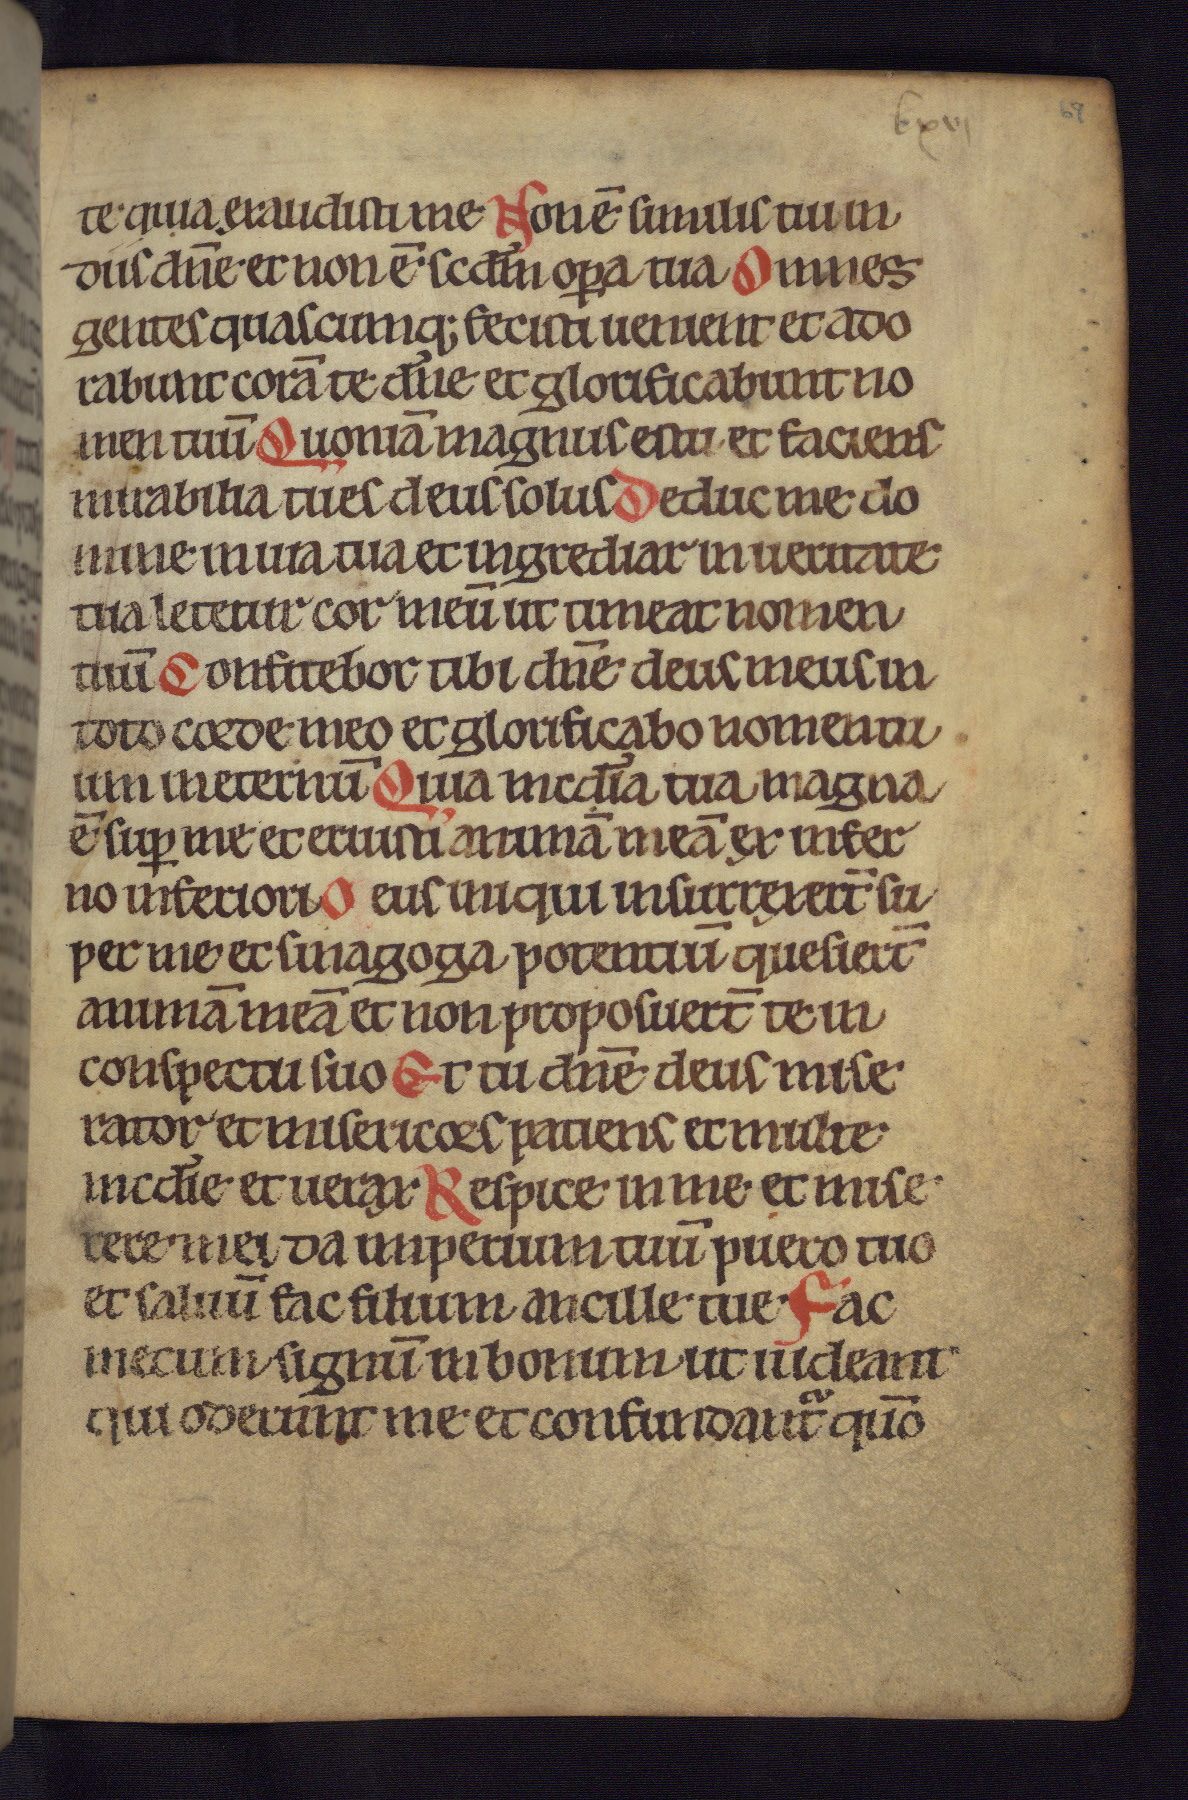 lxvi 69
te quia exaudisti me Non ē similis tui in
diis dn̄e et non ē scdm̄ opa tua Omnes
gentes quascumq; fecisti uenient et ado
rabunt corā te dn̄e et glorificabunt no
men tuū Quoniā magnus es tu et faciens
mirabilia tu es deus solus Deduc me do
mine in uia tua et ingrediar in ueritate
tua letetur cor meū ut timeat nomen
tuū Confitebor tibi dn̄e deus meus in
toto corde meo et glorificabo nomen tu
um in eternū Quia mcdīa tua magna
ē sup me et eruisti animā meā ex infer
no inferiori Deus iniqui insurrexert̄ su
per me et sinagoga potentiū quesiert̄
animā meā et non proposuert̄ te in
conspectu suo Et tu dn̄e deus mise
rator et misericors patiens et multe
mcdīe et uerax Respice in me et mise
rere mei da imperium tuū puero tuo
et saluū fac filium ancille tue Fac
mecum signū in bonum ut uideant
qui oderunt me et confundant᷑ qūo